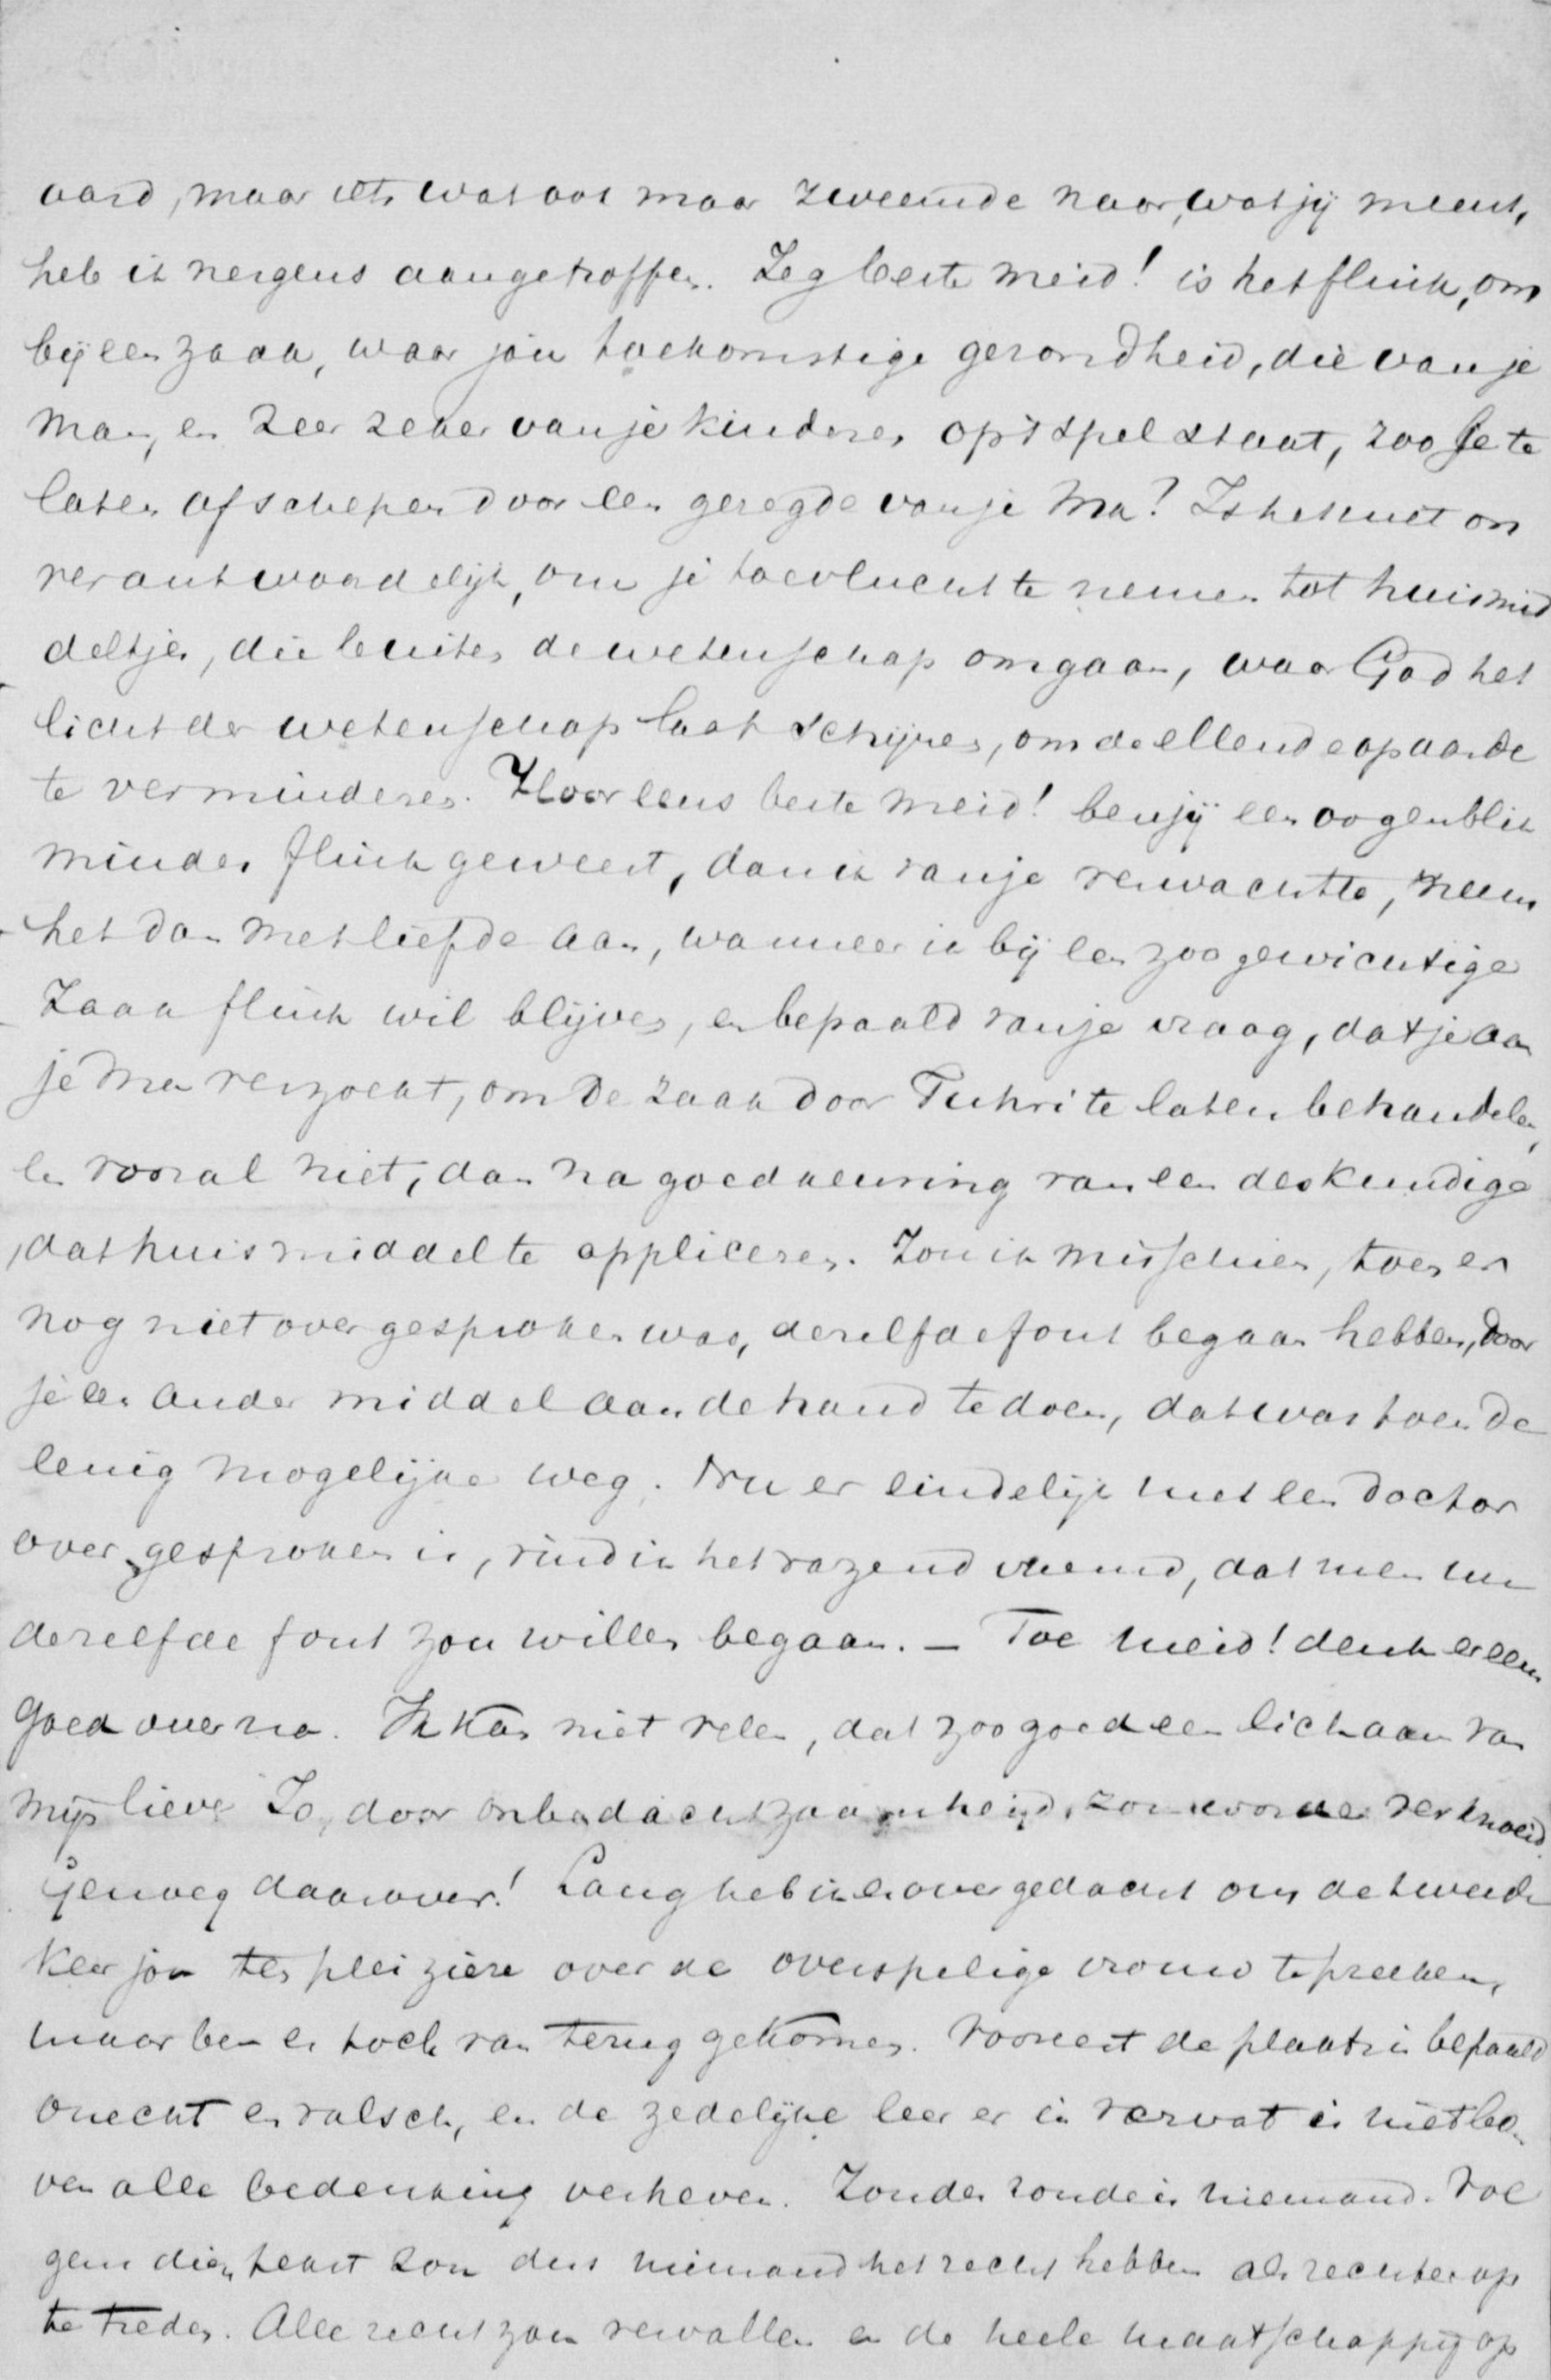 aard, maar iets wat ook maar zweemde naar, wat jij meent,
heb ik nergens aangetroffen. Zeg beste meid! is het flink, om
bij een zaak, waar jou toekomstige gezondheid, die van je
man, en zeer zeker van je kinderen op 't spel staat, zoo je te
laten afschepen door een gezegde van je Ma? Is het niet on
verantwoordelijk, om je toevlucht te nemen tot huismid
deltjes, die buiten de wetenschap omgaan, waar God het
licht der wetenschap laat schijnen, om de ellende op aarde
te verminderen. Hoor eens beste meid! ben jij een oogenblik
minder flink geweest, dan ik van je verwachtte, neem
het dan met liefde aan, wanneer ik bij een zoo gewichtige
zaak flink wil blijven, en bepaald van je vraag, dat je aan
je Ma verzoekt, om de zaak door Tuhri te laten behandelen,
en vooral niet, dan na goedkeuring van een deskundige
, dat huismiddel te appliceren. Zou ik misschien, toen er
nog niet over gesproken was, dezelfde fout begaan hebben, door
je een ander middel aan de hand te doen, dat was toen de
eenig mogelijke weg. Nu er eindelijk met een doctor
over gesproken is, vind ik het razend vreemd, dat men nu
dezelfde fout zou willen begaan. — Toe meid! denk er eens
goed over na. Ik kan niet velen, dat zoo goed een lichaam van
mijn lieve Jo, door onbedachtzaamheid, zou worden verknoeid.
Genoeg daarover! Lang heb ik er over gedacht om de tweede
keer jou ten pleiziere over de overspelige vrouw te preeken,
maar ben er toch van terug gekomen. Vooreerst de plaats is bepaald
onecht en valsch, en de zedelijke leer er in vervat is niet bo
ven alle bedenking verheven. Zonder zonde is niemand. Vol
gens dien tekst zou dus niemand het recht hebben als rechter op
te treden. Alle recht zou vervallen en de heele maatschappij op